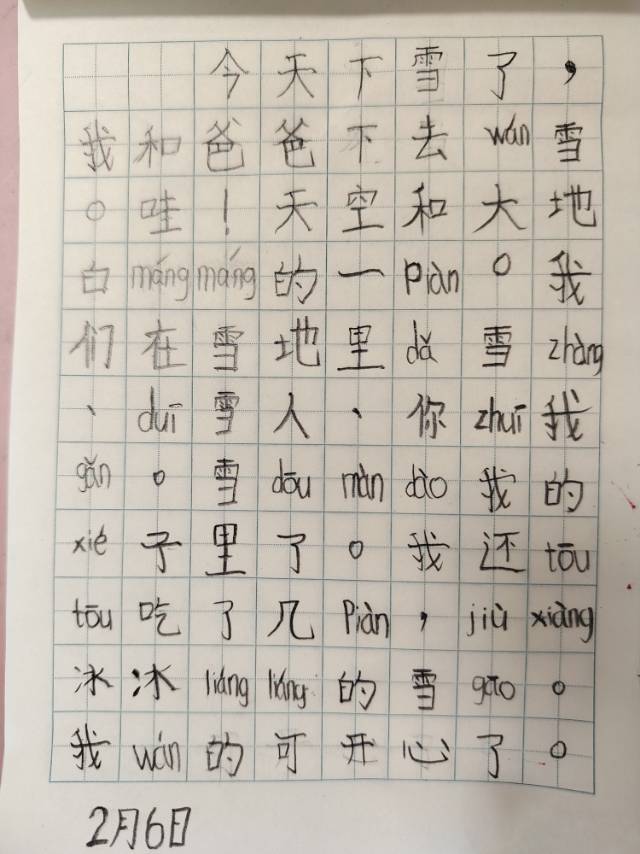 今天下雪了，
我和爸爸下去wán雪
。哇！天空和大地
白mángmáng的一piàn。我
们在雪地里dǎ雪zhàng
、duī雪人、你zhuī我
gǎn。雪dōu màn dào我的
xié子里了。我还tōu
tōu吃了几piàn，jiù xiàng
冰冰liáng liáng的雪gāo。
我wán的可开心了。
2月6日